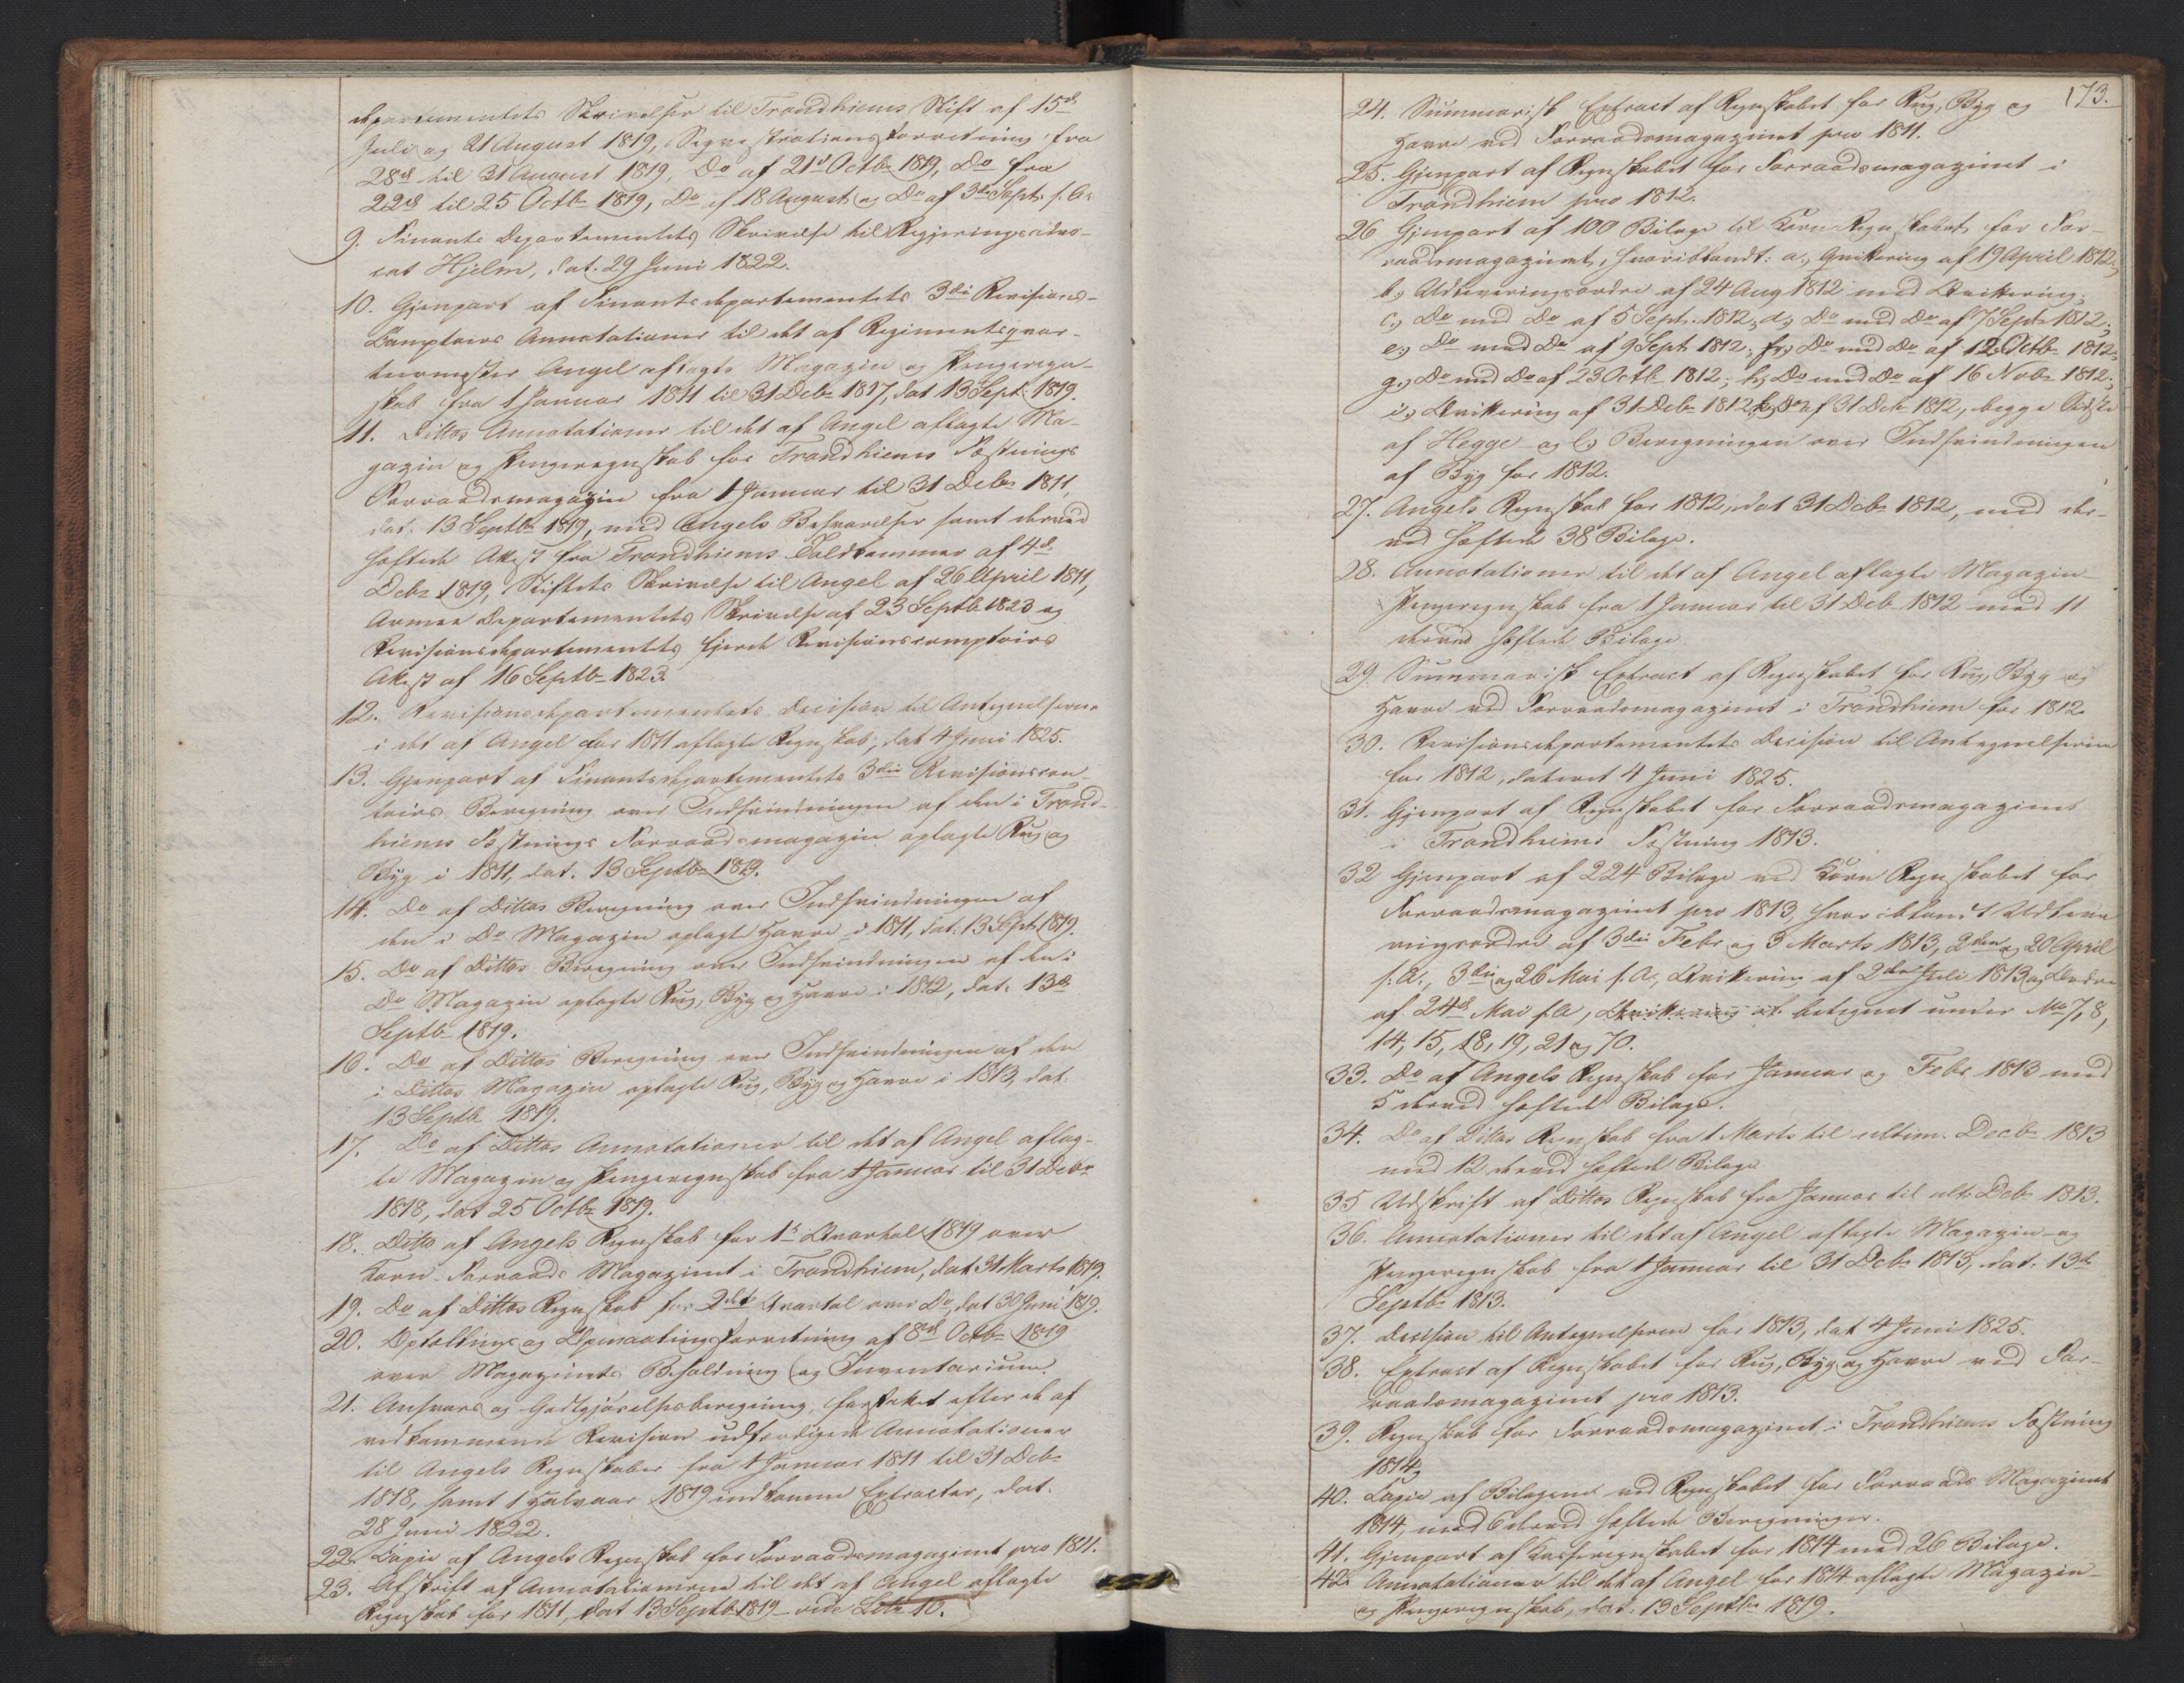 departementets Skrivelser til Trondhiems Stift af 15de
Juli og 21 August 1819, Seqvestrationsforretning fra
28de til 31 August 1819, Do af 21de Octbr 1819, Do fra
22de til 25 Octbr 1819, Do af 18 August og Do af 3die Septr s. A.
9. Finants Departementets Skrivelse til Regjeringsadvo-
cat Hjelm, dat. 29 Juni 1822.
10. Gjenpart af Finantsdepartementets 3die Revisions-
Comptoirs Annotationer til det af Regimentsqvar-
teermester Angel aflagte Magazin og Pengeregn-
skab fra 1 Januar 1811 til 31 Debr 1817, dat 13 Septr 1819.
11. Dittos Annotationer til det af Angel aflagte Ma-
gazin og Pengeregnskab for Trondhiems Fæstnings
Forraadsmagazin fra 1 Januar til 31 Debr 1811,
dat. 13 Septbr 1819, med Angels Besvarelser samt derved
heftede Akst fra Trondhiems Toldkammer af 4de
Debr 1819, Stiftets Skrivelse til Angel af 26 April 1811,
Armee Departementets Skrivelse af 23 Septb 1823 og
Revisionsdepartementets fjerde Revisionscomptoirs
Akst af 16 Septbr 1823.
12. Revisionsdepartementets Decision til Antegnelserne
i det af Angel for 1811 aflagte Regnskab, dat 4 Juni 1825.
13. Gjenpart af Finantsdepartementets 3die Revisionscon-
toirs Beregning over Indsvindningen af den i Trond-
hiems Fæstnings Forraadsmagazin oplagte Rug og
Byg i 1811, dat. 13 Septbr 1819.
14. Do af Dittos Beregning over Indsvindningen af
den i Do Magazin oplagte Havre i 1811, dat. 13 Septr 1819.
15. Do af Dittos Beregning over Indsvindningen af den i
Do Magazin oplagte Rug, Byg og Havre i 1812, dat. 13de
Septb 1819.
16. Do af Dittos Beregning over Indsvindningen af den
i Dittos Magazin oplagte Rug, Byg og Havre i 1813, dat.
13 Septb 1819.
17. Do af Dittos Annotationer til det af Angel aflag-
te Magazin og Pengeregnskab fra 1 Januar til 31 Debr
1818, dat 25 Octbr 1819.
18. Ditto af Angels Regnskab for 1ste Qvartal 1819 over
Korn-Forraads Magazinet i Trondhiem, dat 31 Marts 1819.
19. Do af Dittos Regnskab for 2det Qvartal over Do, dat 30 Juni 1819.
20. Optællings og Opmaalingsforretning af 8de Octbr 1819
over Magazinets Beholdning og Inventarium.
21. Ansvars og Godtgjørelsesberegning, forfattet efter de af
vedkommende Revision udfærdigede Annotationer
til Angels Regnskaber fra 1 Januar 1811 til 31 Debr
1818, samt 1 Halvaar 1819 indkomne Extracter, dat.
28 Juni 1822.
22. Copie af Angels Regnskab for Forraadsmagazinet pro 1811.
23. Afskrift af Annotationerne til det af Angel aflagte
Regnskab for 1811, dat 13 Septb 1819 - vide Litr 10.
173.
24. Summarisk Extract af Regnskabet for Rug, Byg og
Havre ved Forraadsmagazinet pro 1811.
25. Gjenpart af Regnskabet for Forraadsmagazinet i
Trondhiem pro 1812.
26 Gjenpart af 100 Bilage til Korn Regnskabet for For-
raadsmagazinet, hvoriblandt: a., Qvittering af 19 April 1812,
b.) Udleveringsordre af 24 Aug 1812 med Qvittering;
c.) Do med Do af 5 Septr. 1812; d.) Do med Do af 7 Septr 1812;
e.) Do med Do af 9 Sept 1812; f.) Do med Do af 12 Octbr 1812;
g.) Do med Do af 23 Octb 1812; h.) Do med Do af 16 Nobr 1812;
i.) Qvittering af 31 Debr 1812, k.) Do af 31 Debr 1812, begge Udstedte
af Hegge og l.) Beregningen over Indsvindningen
af Byg for 1812.
27. Angels Regnskab for 1812, dat 31 Debr 1812, med der-
ved heftede 38 Bilage.
28. Annotationer til det af Angel aflagte Magazin-
Pengeregnskab fra 1 Januar til 31 Deb 1812 med 11
derved heftede Bilage
29. Summarisk Extract af Regnskabet for Rug, Byg og
Havre ved Forraadsmagazinet i Trondhiem for 1812.
30. Revisionsdepartementets Decision til Antegnelserne
for 1812, dateret 4 Juni 1825.
31. Gjenpart af Regnskabet for Forraadsmagazinet
i Trondhiems Fæstning 1813.
32 Gjenpart af 224 Bilage ved Korn Regnskabet for
Forraadsmagazinet pro 1813, hvoriblandt Udleve-
ringsordre af 3die Febr og 3 Marts 1813, 2den og 20 April
s. A., 3die og 26 Mai s. A., Qvittering af 2den Juli 1813 og Ordre
af 24de Mai s. A, betegnet under No 7, 8,
14, 15, 18, 19, 21 og 70.
33. Do af Angels Regnskab for Januar og Febr 1813 med
5 derved heftede Bilage.
34. Do af Dittos Regnskab fra 1 Marts til ultim. Decbr 1813
med 12 derved heftede Bilage
35 Udskrift af Dittos Regnskab fra Januar til ult. Debr 1813.
36. Annotationer til det af Angel aflagte Magazin- og
Pengeregnskab fra 1 Januar til 31 Debr 1813, dat. 13de
Septbr 1813.
37. Decision til Antegnelserne for 1813, dat 4 Juni 1825.
38. Extract af Regnskabet for Rug, Byg og Havre ved For-
raadsmagazinet pro 1813.
39. Regnskab for Forraadsmagazinet i Trondhiems Fæstning
1814.
40. Copie af Bilagene ved Regnskabet for Forraads Magazinet
1814, med 6 derved heftede Beregninger.
41. Gjenpart af Kasseregnskabet for 1814 med 26 Bilage.
42. Annotationer til det af Angel for 1814 aflagte Magazin-
og Pengeregnskab, dat. 13 Septbr 1819.